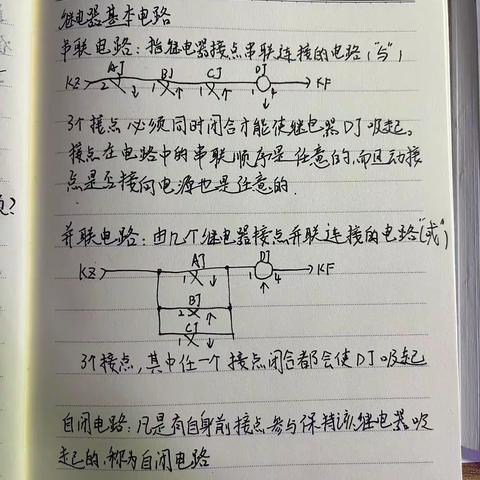 继电器基本电路
串联电路:指继电器接点串联连接的电路("与")
AJ BJ CJ DJ
KZ 2 ↓ 1 ↑ 1 ↑ 1 4 KF
3个接点必须同时闭合才能使继电器DJ吸起。
接点在电路中的串联顺序是任意的,而且动接
点是否接向电源也是任意的.
并联电路:由几个继电器接点并联连接的电路("或")
AJ DJ
KZ 1 ↓ 1 ↑ 4 KF
BJ
2 ↑
CJ
1 ↓
3个接点,其中任一个接点闭合都会使DJ吸起
自闭电路:凡是有自身前接点参与保持该继电器吸
起的,称为自闭电路